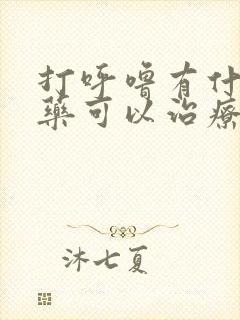 打呼噜有什
藥可以治療
沐七夏